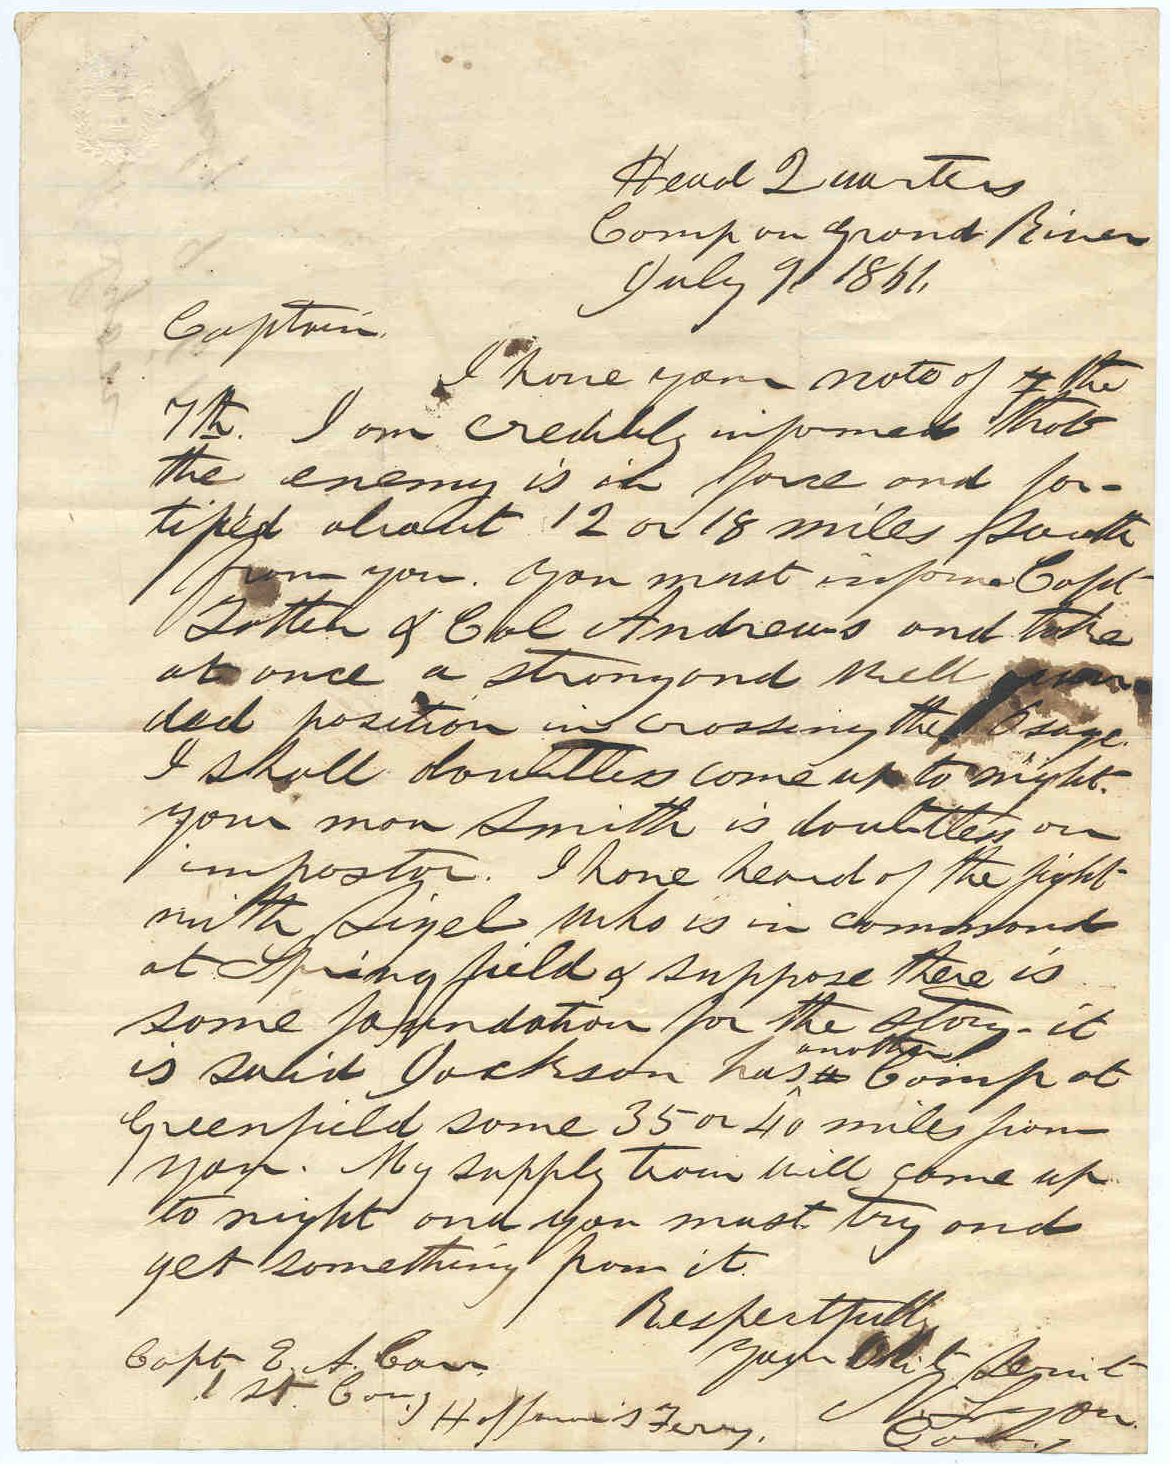 Head Quarters
Camp on Grand River
July 9, 1861,
Captain.
I have your note of the
7th. I am credibly informed that
the enemy is in force and for-
tified about 12 or 18 miles south
from you. You must inform Capt
Totten & Col Andrews and take
at once a strong and well guar
ded position in crossing the Osage.
I shall doubtless come up to night.
your man Smith is doubtless an
impostor. I have heard of the fight
with Sigel who is in command
at Springfield & suppose there is
some foundation for the story - it
is said Jackson has another Camp at
Greenfield some 35 or 40 miles from
you. My supply train will come up
to night and you must try and
get something from it.
Respectfully
Your Obt Servt
N. Lyon
Capt E. A. Carr
1 st. Cav.
Hoffman's Ferry.